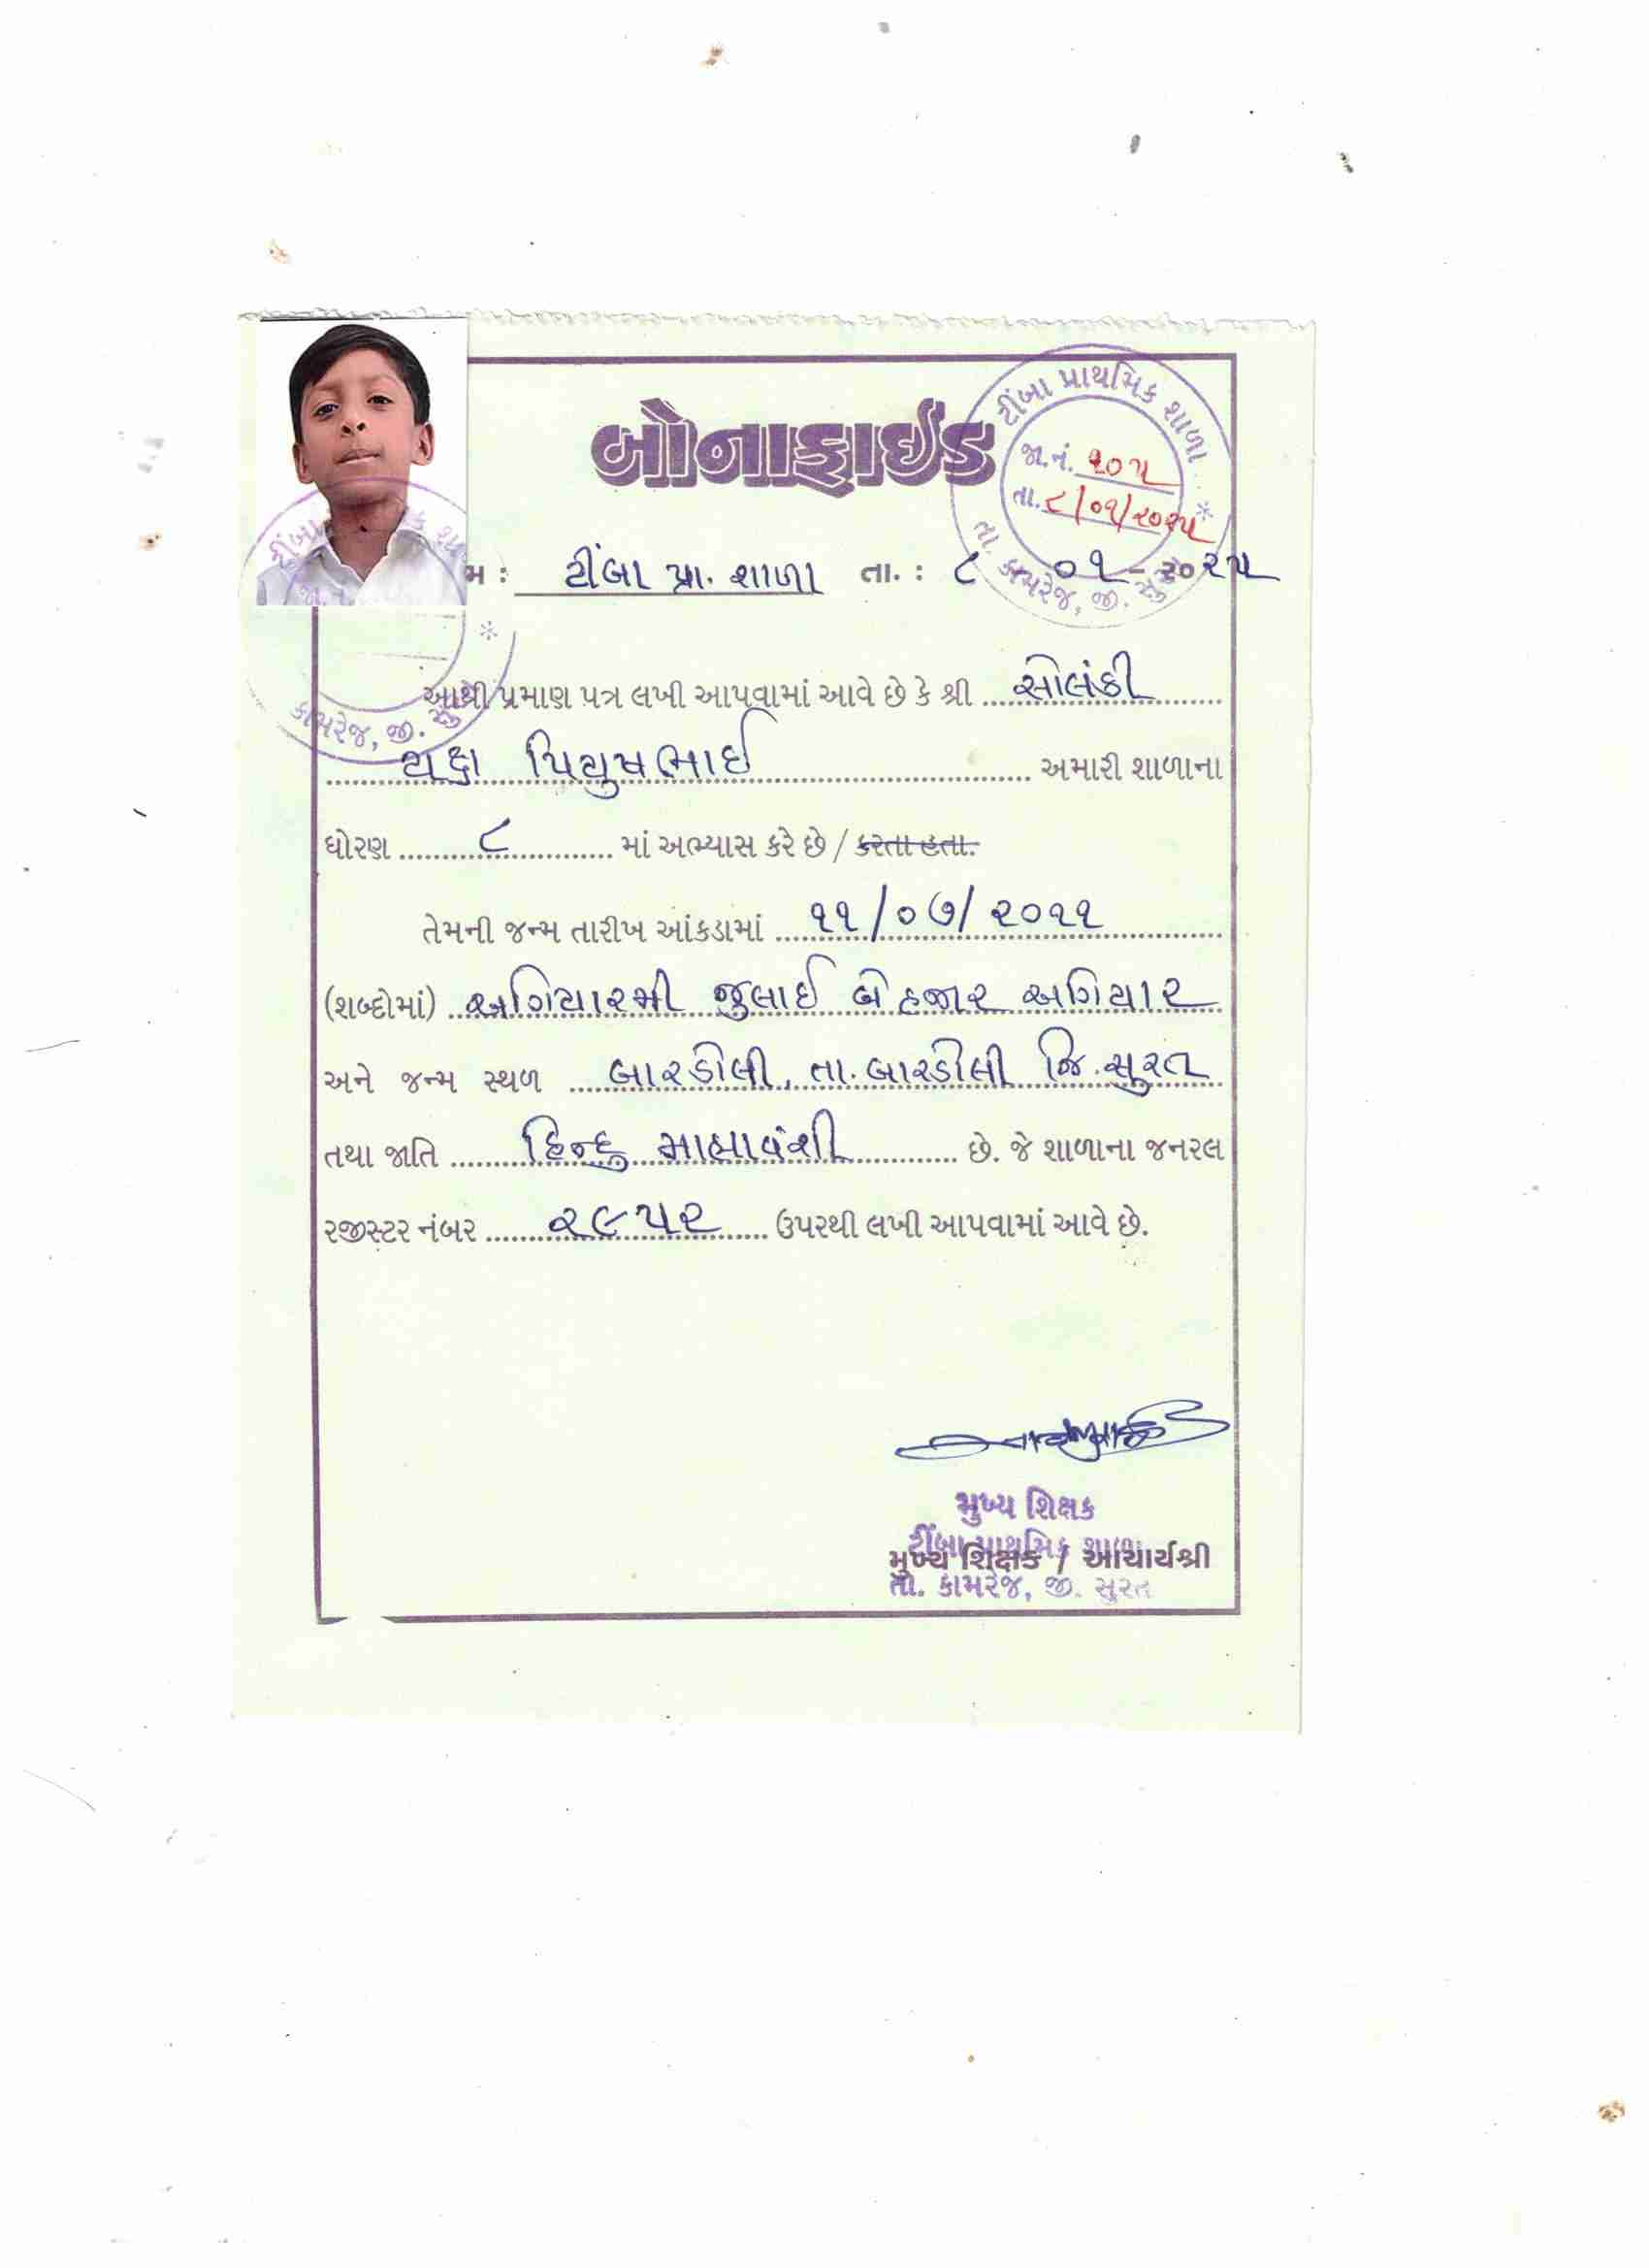 બોનાફાઈડ
ટીંબા પ્રાથમિક શાળા
જા.નં. ૨૦૫
તા. ૮/૦૧/૨૦૨૫
તા. કામરેજ, જી.
મ : ટીંબા પ્રા. શાળા તા. : ૮ ૦૧ - ૨૦૨૫
કામરેજ, જી.
આથી પ્રમાણ પત્ર લખી આપવામાં આવે છે કે શ્રી સોલંકી
યક્ષ પિયુષભાઈ અમારી શાળાના
ધોરણ ૮ માં અભ્યાસ કરે છે / કરતા હતા.
તેમની જન્મ તારીખ આંકડામાં ૧૧/૦૭/૨૦૧૧
(શબ્દોમાં) અગિયારમી જુલાઈ બે હજાર અગિયાર
અને જન્મ સ્થળ બારડોલી, તા. બારડોલી જિ. સુરત
તથા જાતિ હિન્દુ માહ્યાવંશી છે. જે શાળાના જનરલ
રજીસ્ટર નંબર ૨૯૫૨ ઉપરથી લખી આપવામાં આવે છે.
મુખ્ય શિક્ષક
ટીંબા પ્રાથમિક શાળા
મુખ્ય શિક્ષક / આચાર્યશ્રી
તા. કામરેજ, જી. સુરત